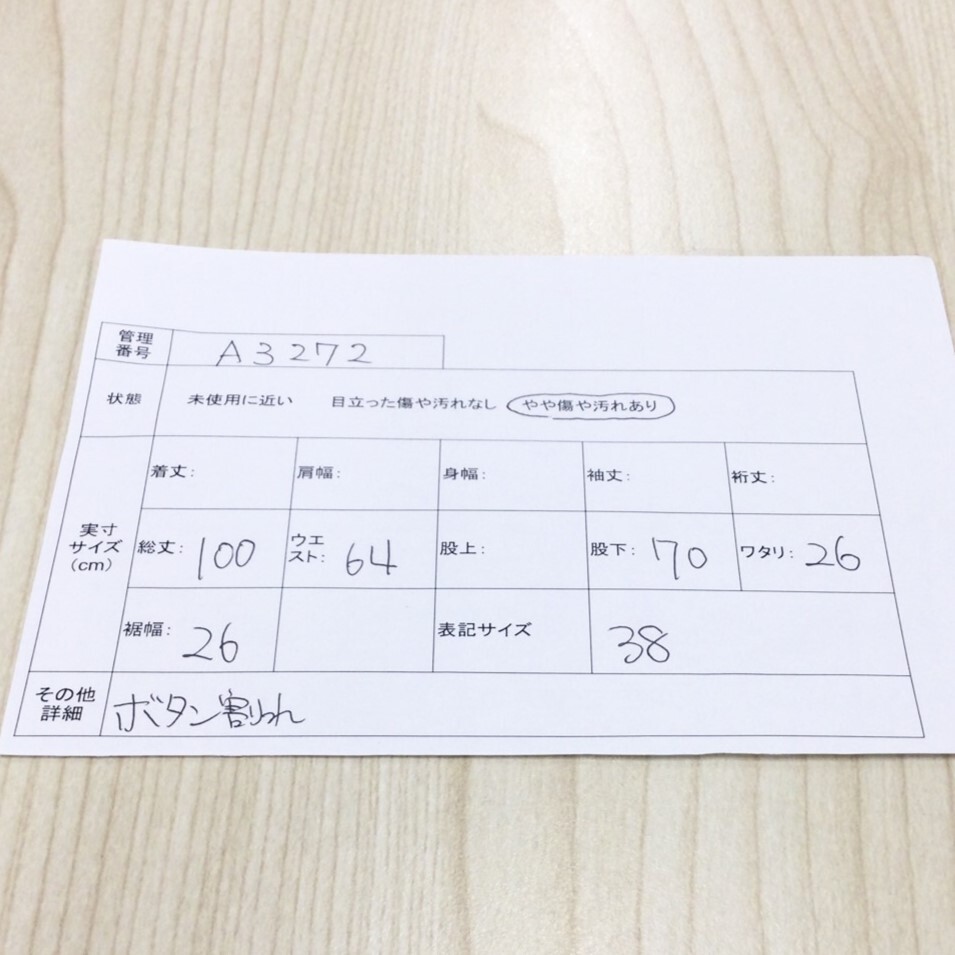 管理番号 A3272
状態 未使用に近い 目立った傷や汚れなし やや傷や汚れあり
実寸サイズ(cm)
着丈: 肩幅: 身幅: 袖丈: 裄丈:
総丈: 100 ウエスト: 64 股上: 股下: 70 ワタリ: 26
裾幅: 26 表記サイズ 38
その他詳細 ボタン割れ